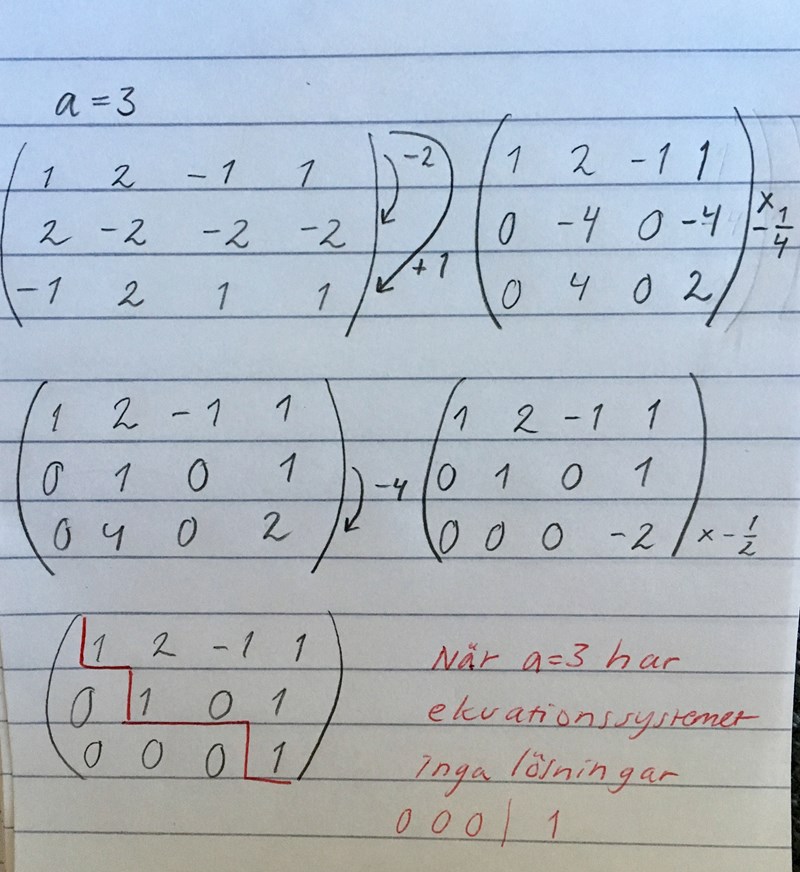 a = 3
1 2 -1 1
2 -2 -2 -2
-1 2 1 1
-2
+1
1 2 -1 1
0 -4 0 -4
0 4 0 2
x -1/4
1 2 -1 1
0 1 0 1
0 4 0 2
-4
1 2 -1 1
0 1 0 1
0 0 0 -2
x -1/2
1 2 -1 1
0 1 0 1
0 0 0 1
När a=3 har
ekvationssystemet
inga lösningar
0 0 0 | 1